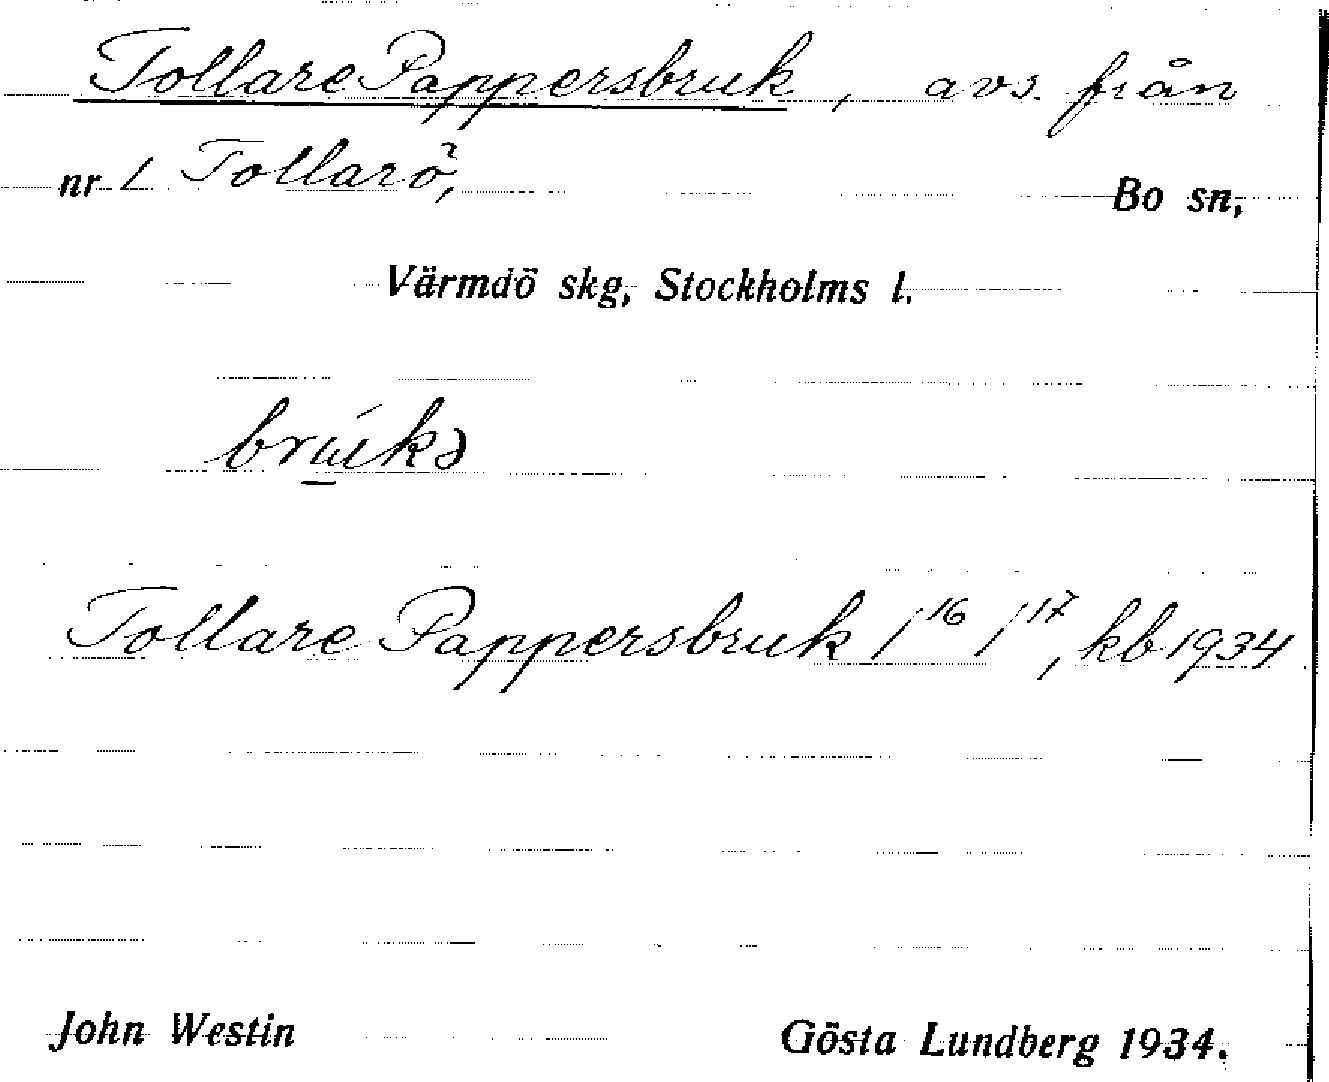 Tollare Pappersbruk, avs. från
nr 1 Tollarö, Bo sn,
Värmdö skg, Stockholms l.
Tollare Pappersbruk 1¹⁶ 1¹⁷, kb 1934
John Westin Gösta Lundberg 1934.